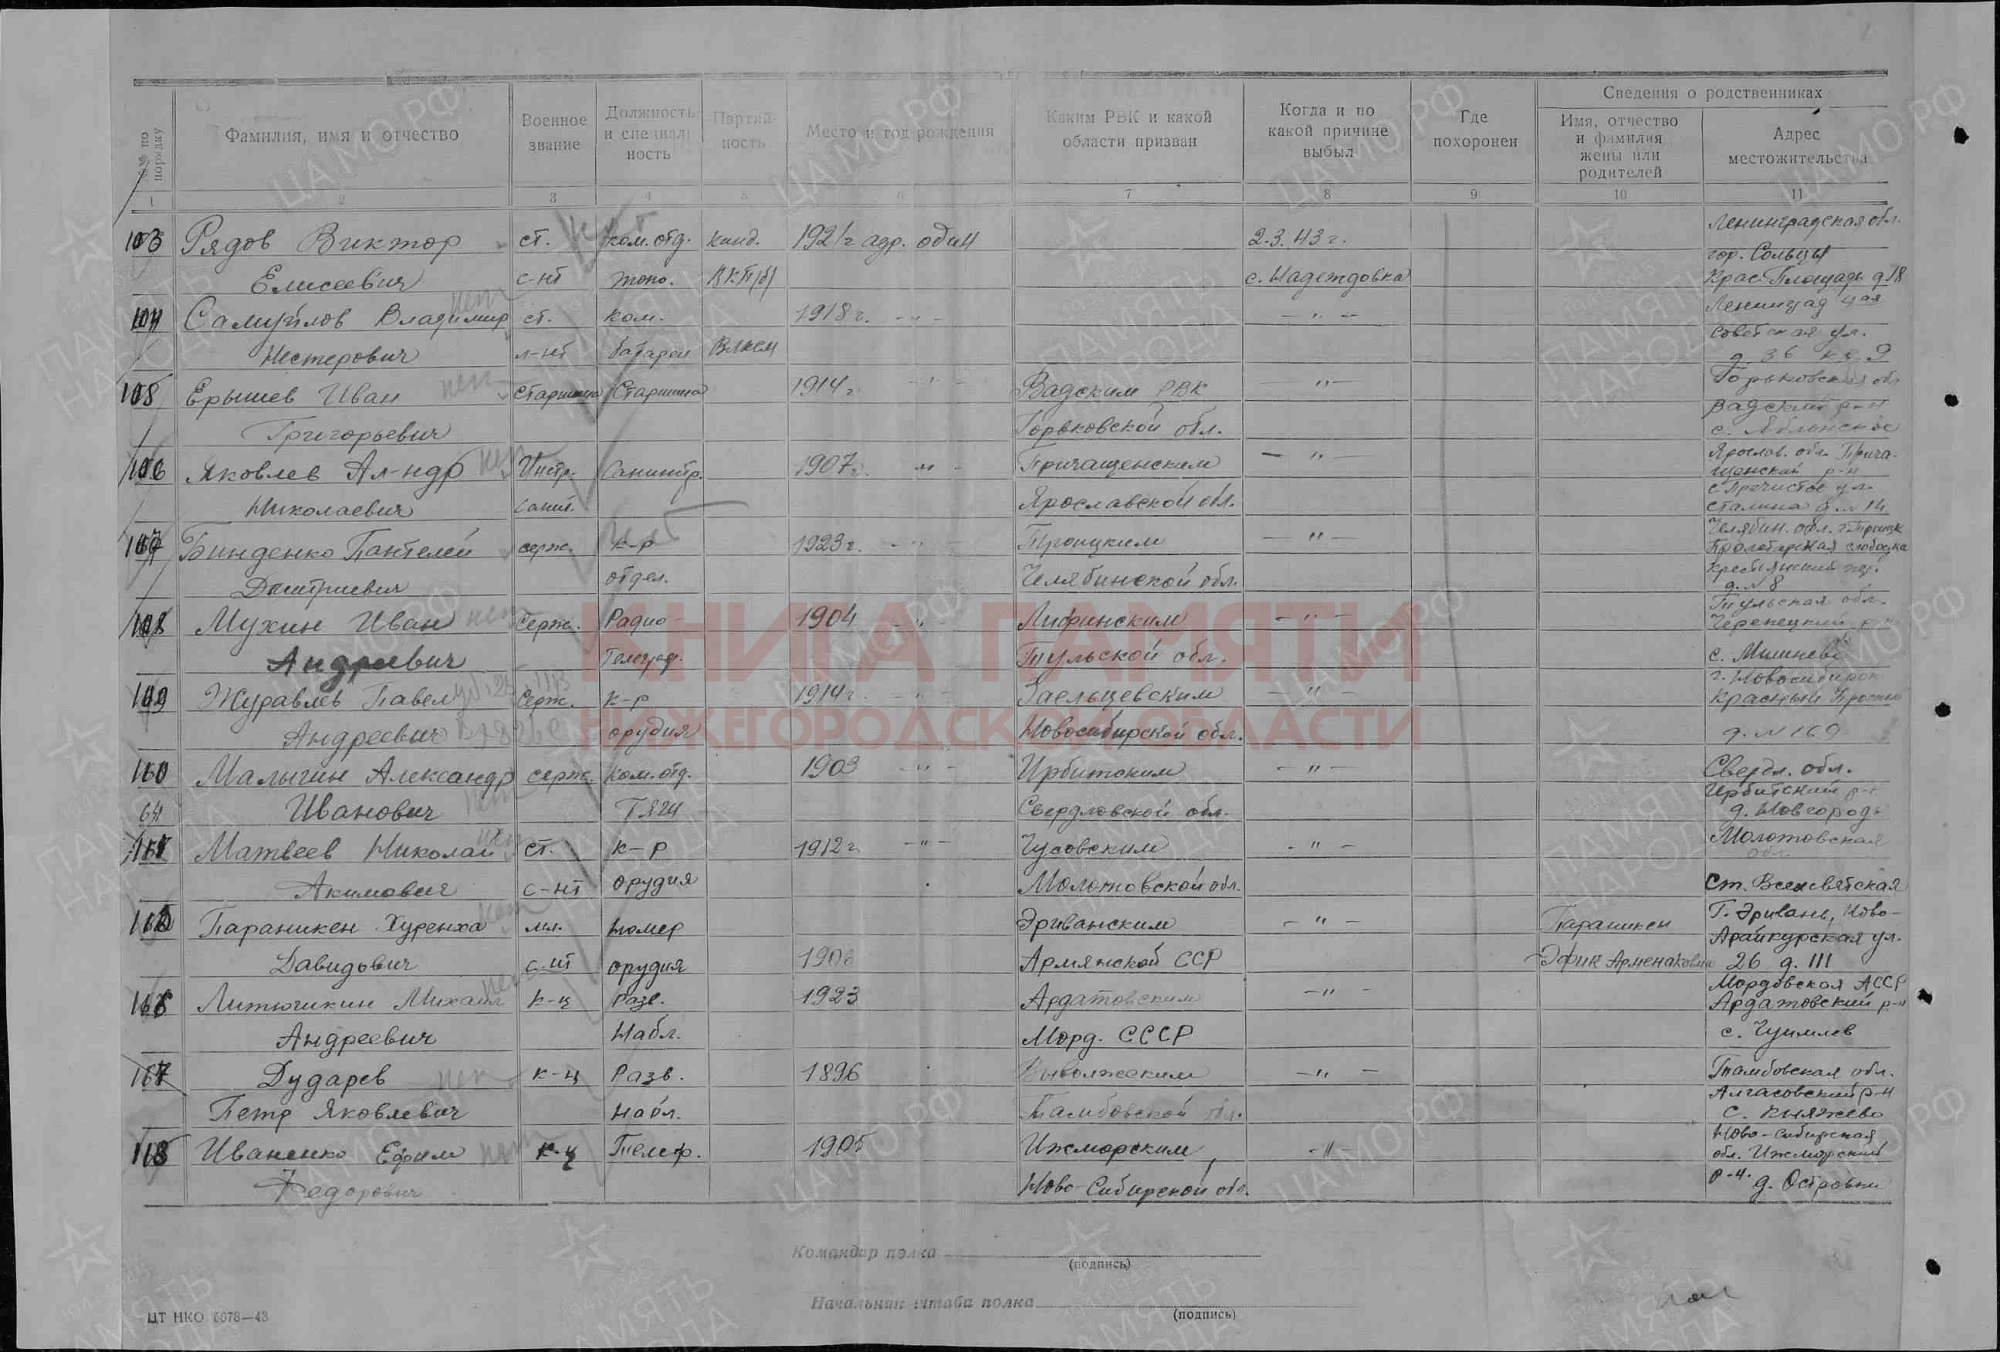 №№ по порядку
Фамилия, имя и отчество
Военное звание
Должность и специальность
Партийность
Место и год рождения
Каким РВК и какой области призван
Когда и по какой причине выбыл
Где похоронен
Сведения о родственниках
Имя, отчество и фамилия жены или родителей
Адрес местожительства
1 2 3 4 5 6 7 8 9 10 11
Рядов Виктор ст. ком. отд. канд. 1921 г адр. один 2.3.43 г. Ленинградская обл.
гор. Сольцы
Елисеевич с-нт ВКП(б) с. Надеждовка Крас. Площадь д. 18
Самуйлов Владимир ст. ком. 1918 г. - " - - " - Ленинград
Советская ул.
Нестерович л-нт батареи ВЛКСМ д. 36 кв. 9
Ерышев Иван нет старшина Старшина 1914 г. - " - Вадским РВК - " - Горьковская обл
Вадский р-н
Григорьевич Горьковской обл. с. Яблонское
106 Яковлев Ал-ндр нет Инстр. Санинстр. 1907 г. - " - Причащенским - " - Ярослав. обл. Прича-
щенский р-н
с. Пречистое ул.
Николаевич санит. Ярославской обл. Сталина д. № 14
Бинденко Пантелей серж. к-р 1923 г. - " - Троицким - " - Челябин. обл. г. Троицк
Пролетарская слободка
Дмитриевич отдел. Челябинской обл. Крестьянский пер.
д. № 8
Мухин Иван нет Серж. Радио- 1904 - " - - " - Тульская обл.
Черепецкий р-н
Андреевич Телеграф. Тульской обл. с.
Журавлев Павел Серж. к-р 1914 г - " - - " - г. Новосибирск
Красный Проспект
Андреевич орудия Новосибирской обл. д. № 169
Малыгин Александр серж. ком. отд. 1903 - " - Ирбитским - " - Свердл. обл.
Ирбитский р-н
64 Иванович Свердловской обл. д. Новгородь
Матвеев Николай нет ст. к-р 1912 г. - " - Чусовским - " - Молотовская
обл.
Акимович с-нт орудия Молотовской обл. ст. Всесвятская
Параникен Хуренха нет мл. номер Эриванским - " - Параникен Г. Эривань, Ново-
Арайкурская ул.
Давидович с-нт орудия 1906 Армянской ССР Эфик Арменаковна 26 д. III
Литючикин Михаил нет к-ц разв. 1923 Ардатовским - " - Мордовская АССР
Ардатовский р-н
Андреевич Набл. Морд. СССР с.
Дударев нет к-ц Разв. 1896 - " - Тамбовская обл.
Алгасовский р-н
Петр Яковлевич Набл. Тамбовской обл. с. Княжево
Иваненко Ефим нет к-ц Телеф. 1905 Ижморским - " - Ново-Сибирская
обл. Ижморский
Федорович Ново-Сибирской обл. р-н. д. Островки
Командир полка
(подпись)
Начальник штаба полка
(подпись)
ЦТ НКО 5678—43
КНИГА ПАМЯТИ
НИЖЕГОРОДСКОЙ ОБЛАСТИ
ЦАМО.РФ
ПАМЯТЬ НАРОДА